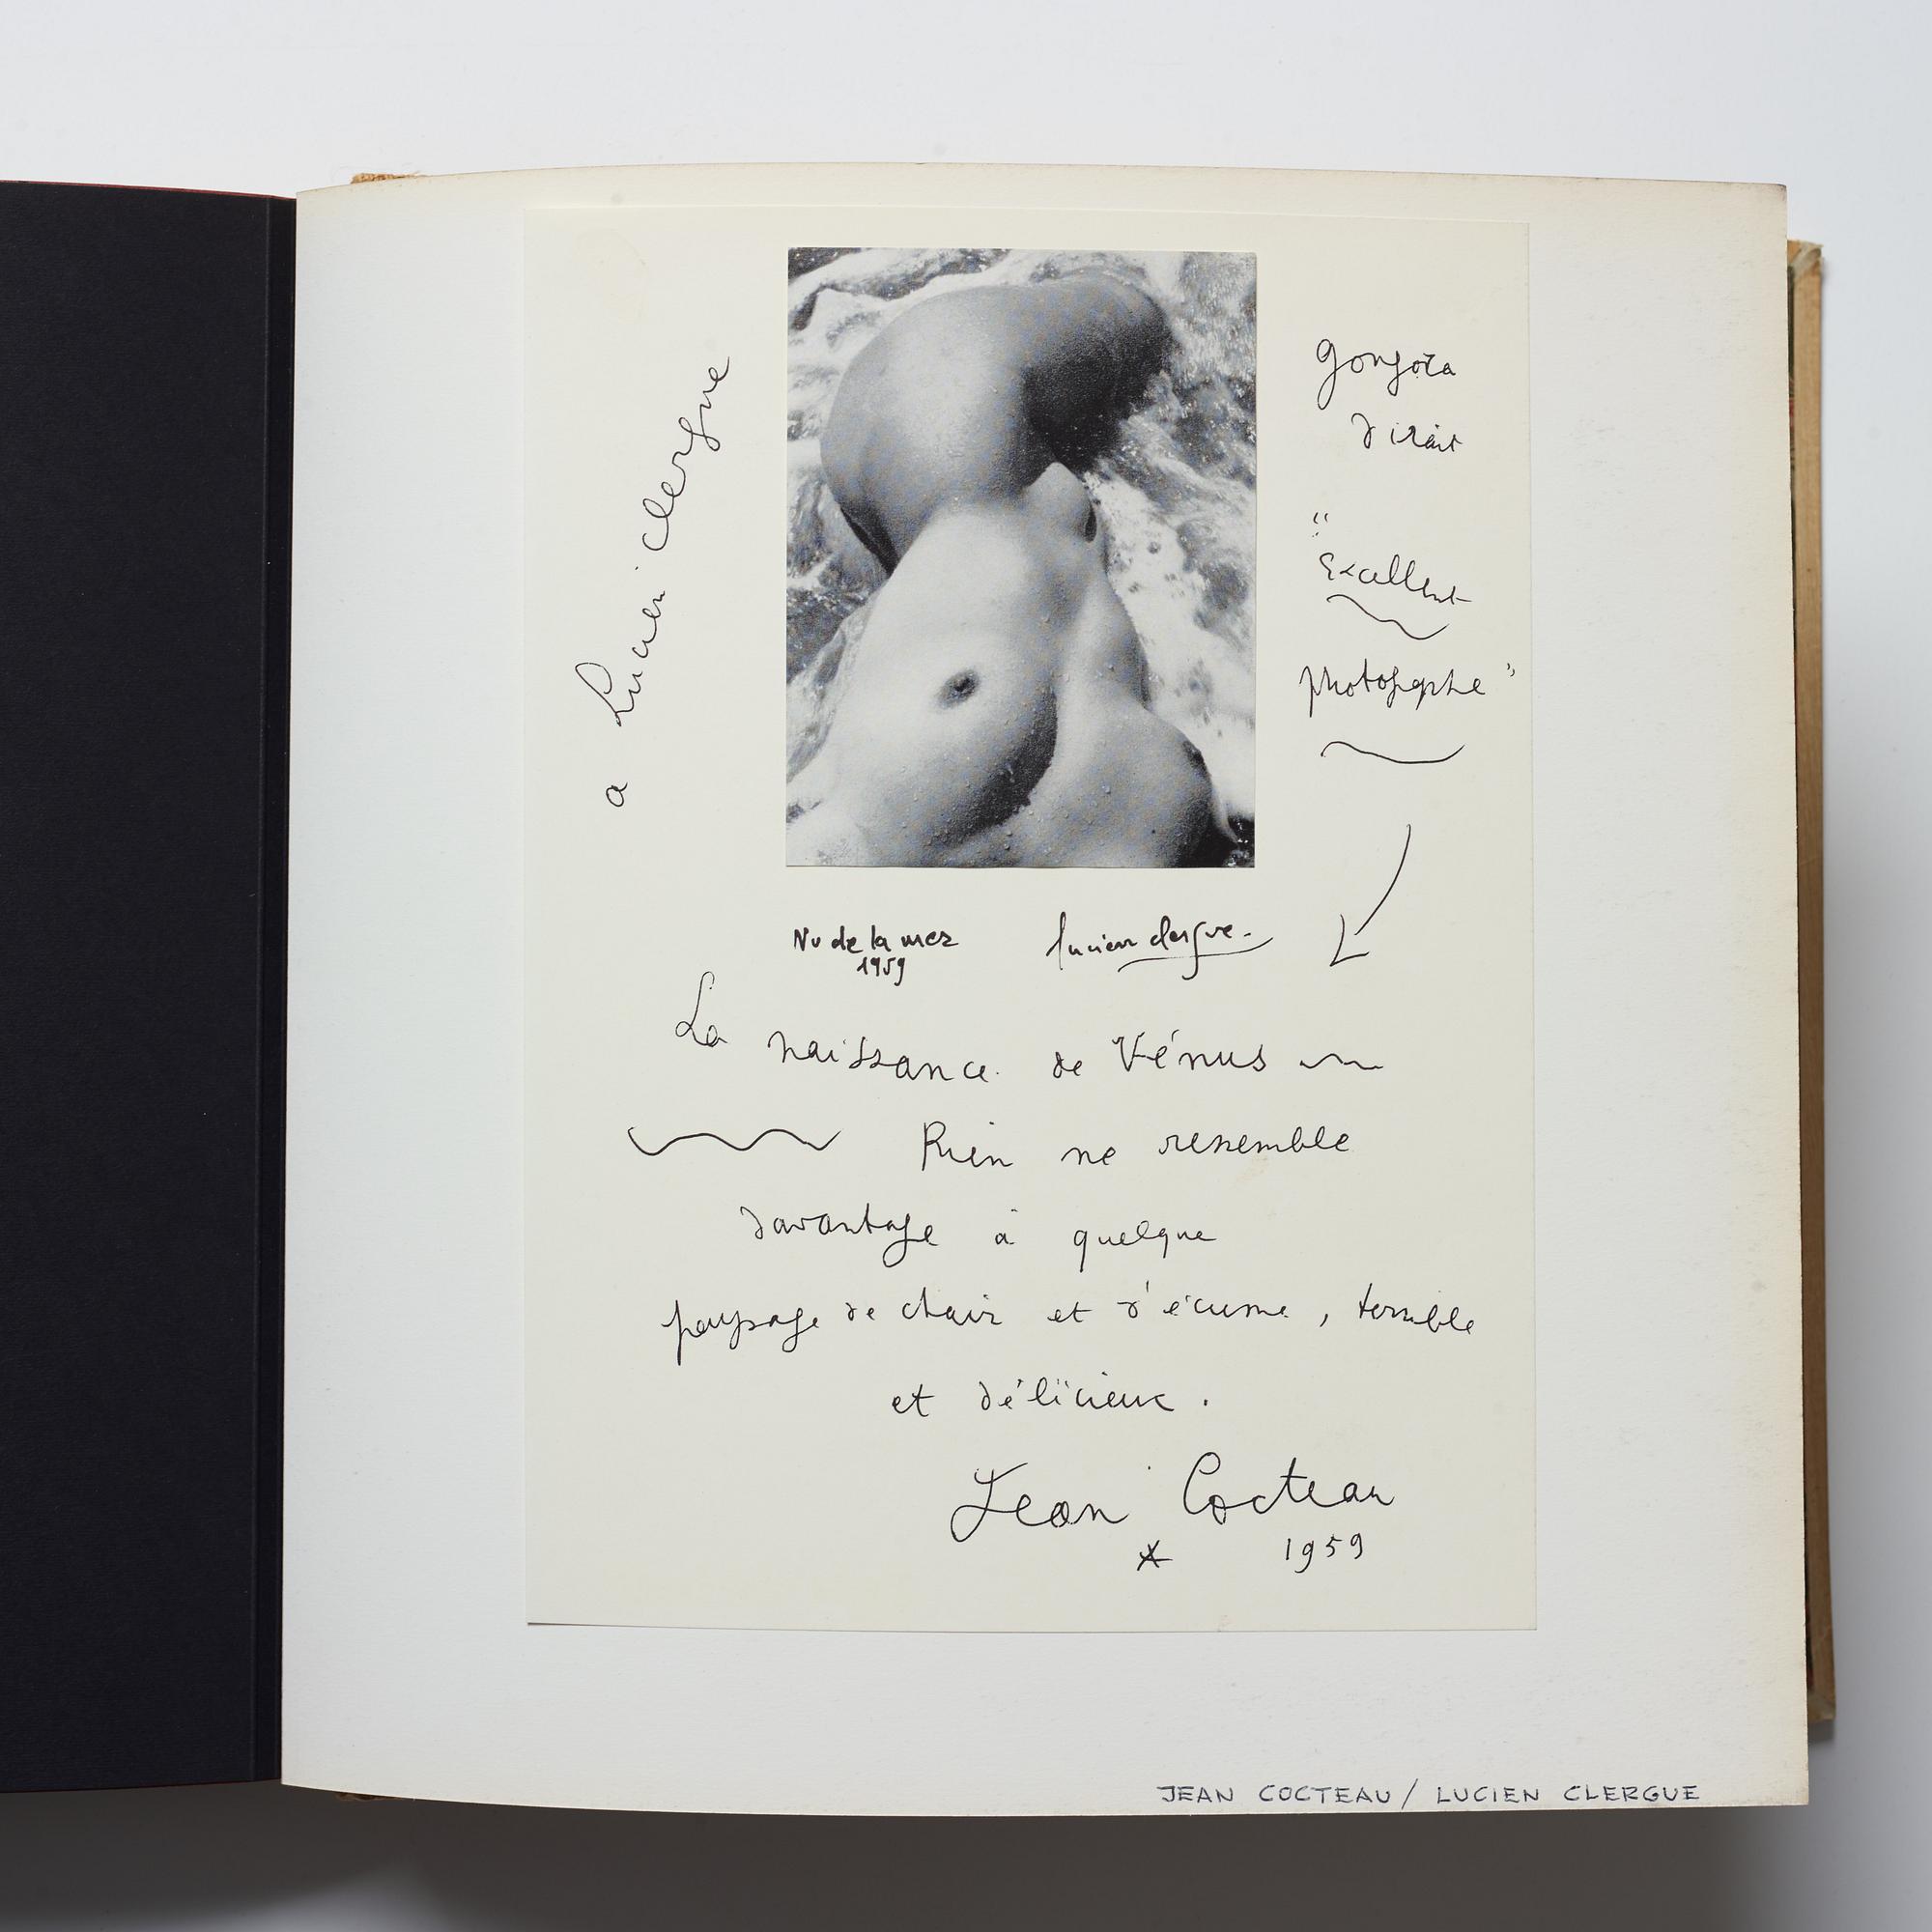 a Lucien Clergue
Gongora
dirait
"
Excellent
photographe"
Nu de la mer
1959
lucien clergue.
La naissance de Vénus
Rien ne ressemble
davantage à quelque
paysage de chair et d'écume, terrible
et délicieux.
Jean Cocteau
1959
JEAN COCTEAU / LUCIEN CLERGUE